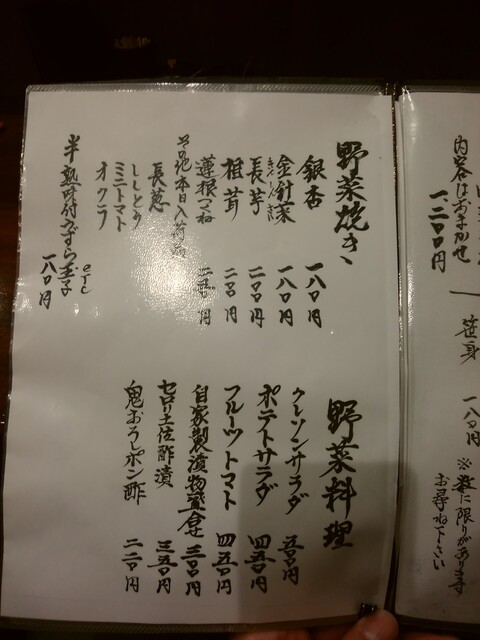 内容はおまかせ
一、二〇〇円
笹身 一八〇円
※数に限りがあります
お尋ね下さい
野菜焼き
銀杏 一八〇円
金針菜 一八〇円
きんしんさい
長芋 二〇〇円
椎茸 二〇〇円
蓮根 二五〇円
その他本日入荷
長葱
ししとう
ミニトマト
オクラ
半熟味付うずら玉子 一八〇円
野菜料理
クレソンサラダ 五〇〇円
ポテトサラダ 四五〇円
フルーツトマト 四五〇円
自家製漬物盛合せ 三〇〇円
セロリ土佐酢漬 三五〇円
鬼おろしポン酢 二二〇円